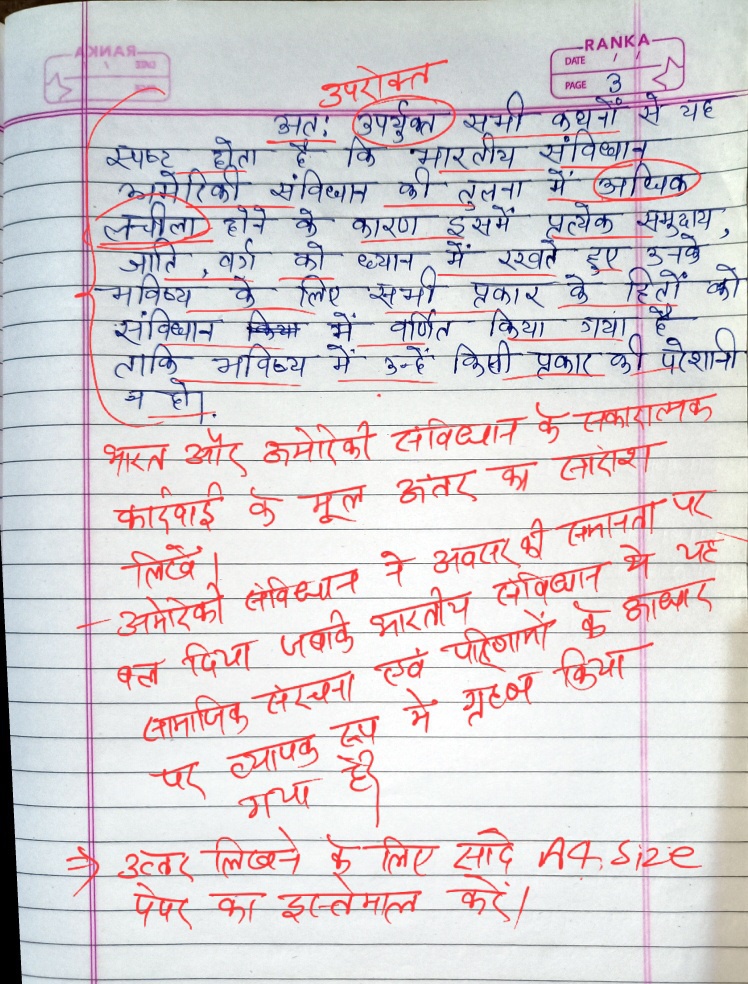 RANKA
DATE / /
PAGE 3
उपरोक्त
अतः उपर्युक्त सभी कथनों से यह
स्पष्ट होता है कि भारतीय संविधान
अमेरिकी संविधान की तुलना में अधिक
लचीला होने के कारण इसमें प्रत्येक समुदाय,
जाति, वर्ग को ध्यान में रखते हुए उनके
भविष्य के लिए सभी प्रकार के हितों को
संविधान किया में वर्णित किया गया है
ताकि भविष्य में उन्हें किसी प्रकार की परेशानी
न हो।
भारत और अमेरिकी संविधान के सकारात्मक
कार्रवाई के मूल अंतर का सारांश
लिखें।
- अमेरिकी संविधान ने अवसर की समानता पर
बल दिया जबकि भारतीय संविधान में यह
सामाजिक संरचना एवं परिणामों के आधार
पर व्यापक रूप में ग्रहण किया
गया है।
⇒ उत्तर लिखने के लिए सादे A4 Size
पेपर का इस्तेमाल करें।